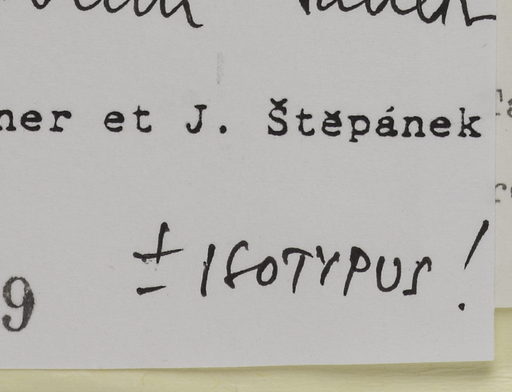 ner et J. Štěpánek
± ISOTYPUS!
9